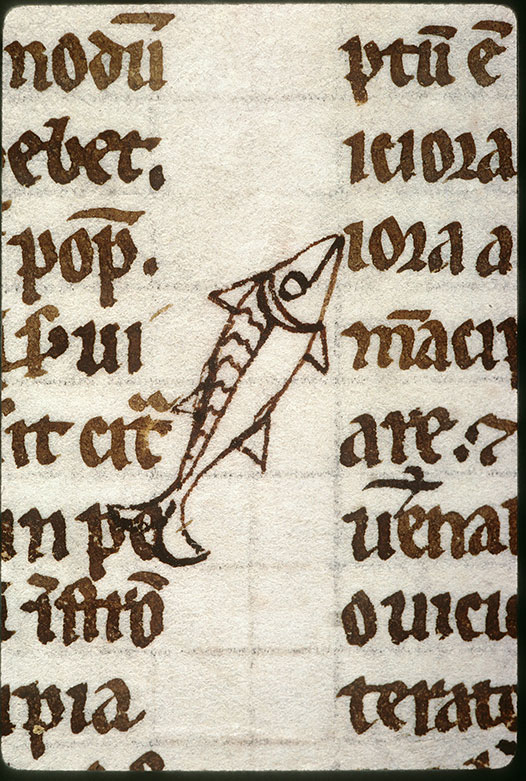 nodū
ebet.
pop̄.
ſpui
it cit̄
in pe
i īſtrō
apia
ptū ē
iciora
iora a
m̄aciꝑ
are. ⁊
uēnal
ouicu
terat